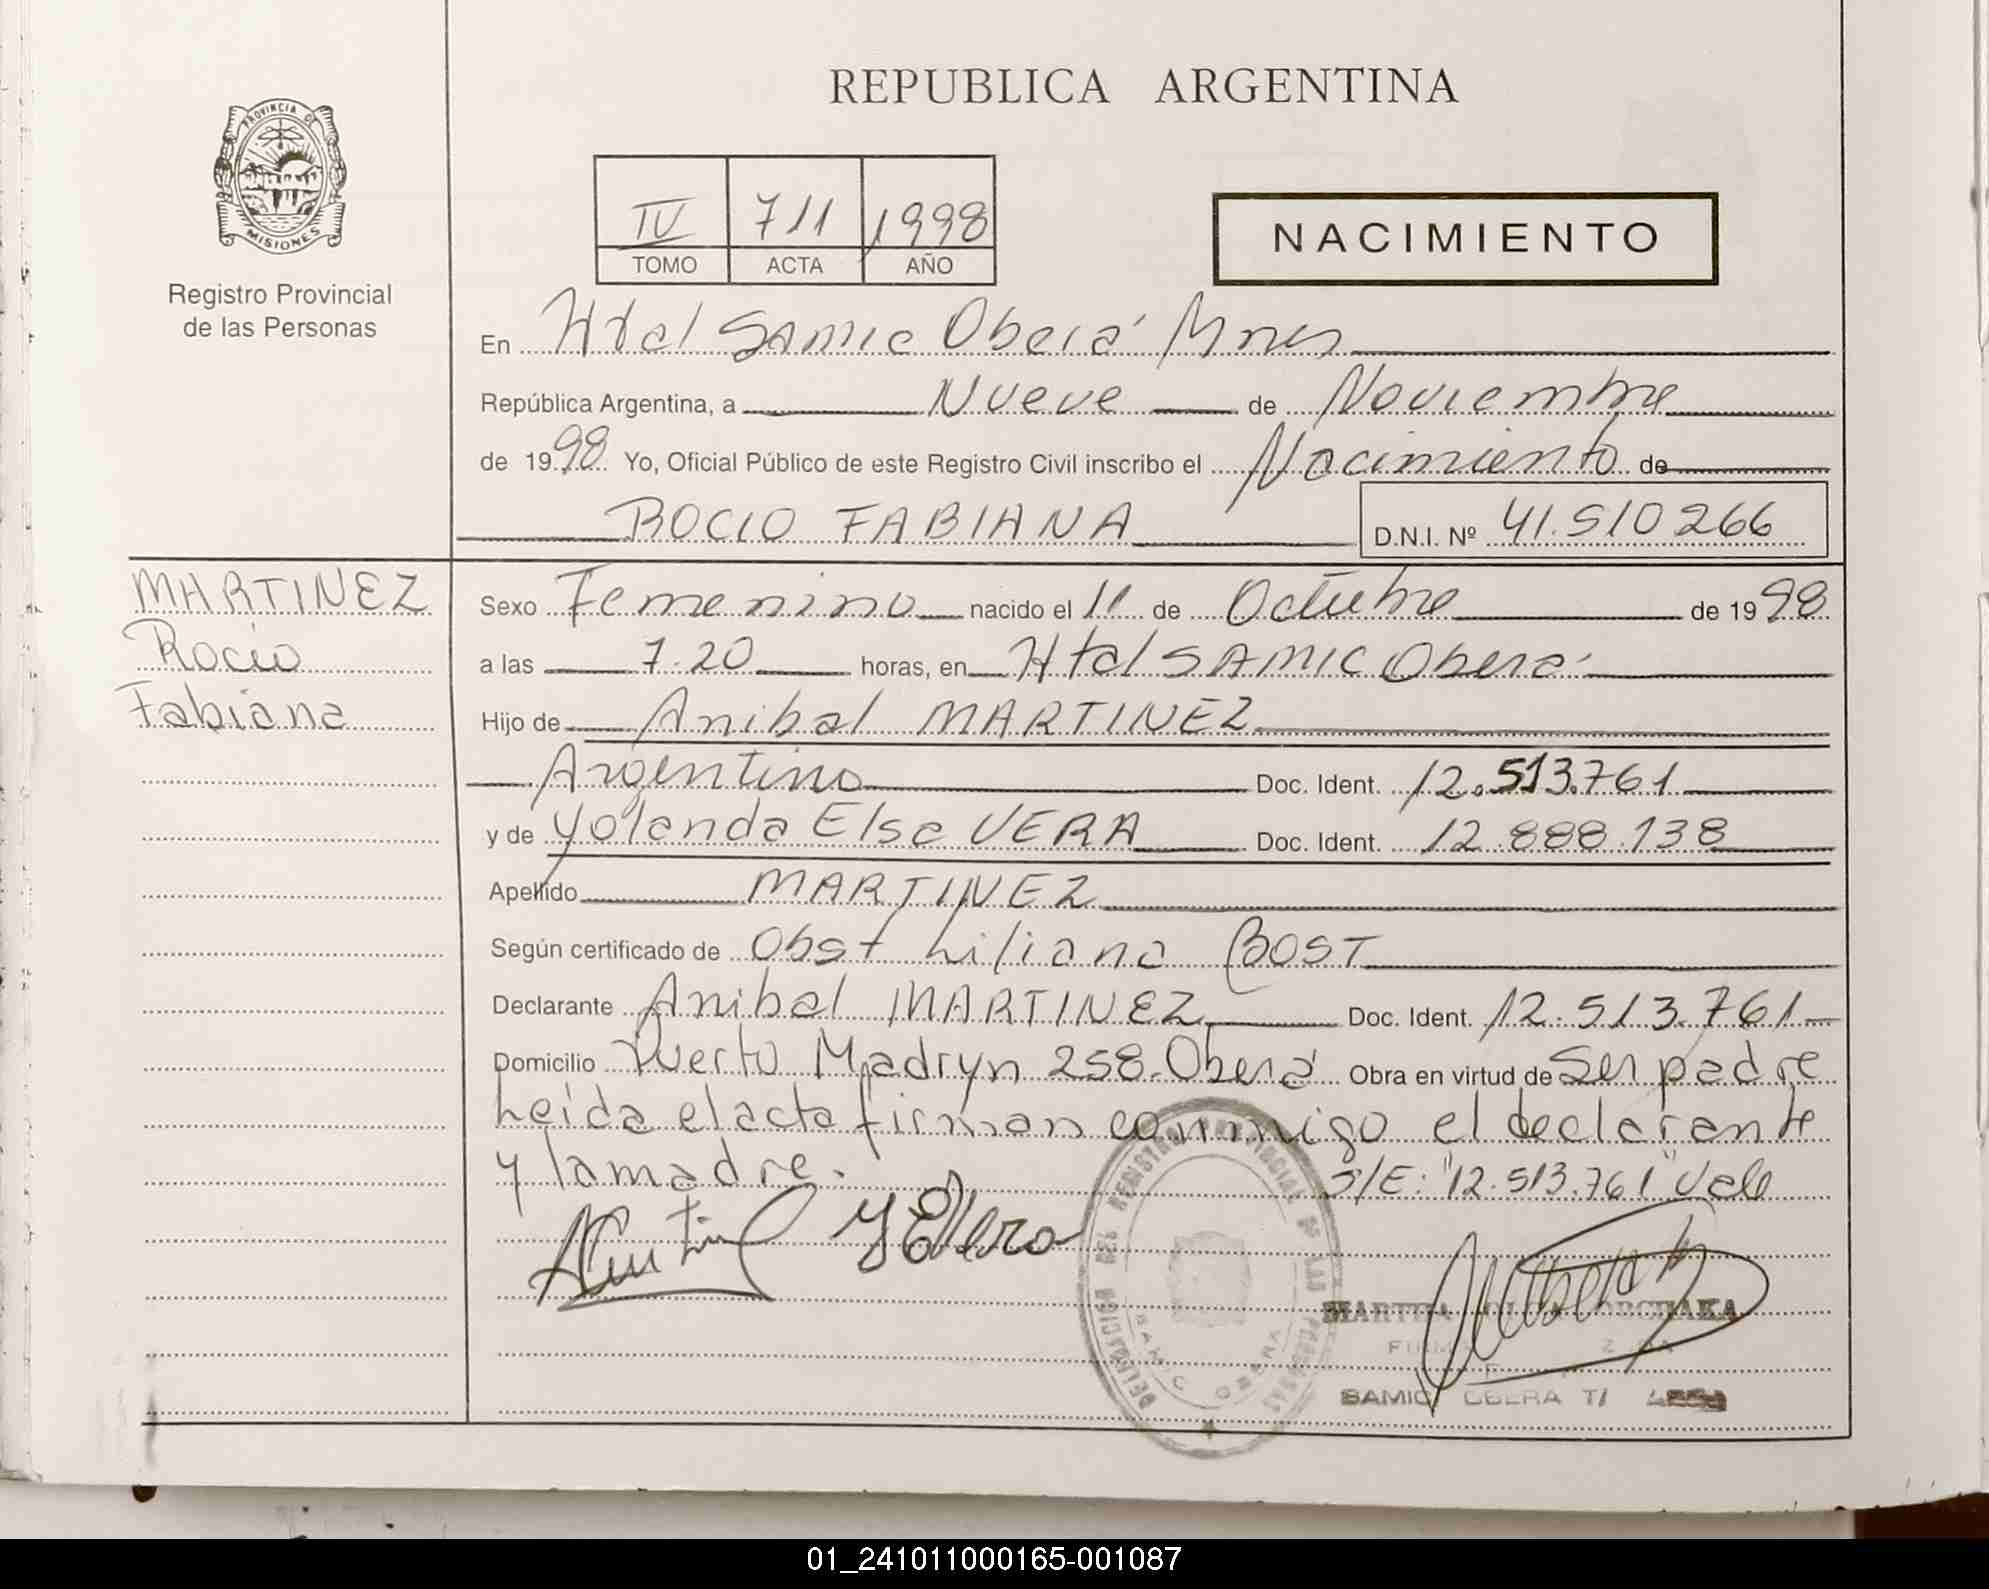 REPUBLICA ARGENTINA
PROVINCIA DE
MISIONES
Registro Provincial
de las Personas
IV 711 1998
TOMO ACTA AÑO
NACIMIENTO
En Htal SAMIC Oberá Mnes
República Argentina, a Nueve de Noviembre
de 1998 Yo, Oficial Público de este Registro Civil inscribo el Nacimiento de
ROCIO FABIANA D.N.I. Nº 41.510266
MARTINEZ
Rocio
Fabiana
Sexo Femenino nacido el 11 de Octubre de 1998
a las 7.20 horas, en Htal SAMIC Oberá
Hijo de Anibal MARTINEZ
Argentino Doc. Ident. 12.513.761
y de Yolanda Elsa VERA Doc. Ident. 12.888.138
Apellido MARTINEZ
Según certificado de Obst Liliana BOST
Declarante Anibal MARTINEZ Doc. Ident. 12.513.761
Domicilio Puerto Madryn 258-Oberá Obra en virtud de Ser padre
Leída el acta firman conmigo el declarante
y la madre. S/E: "12.513.761" Vale
Y E Vera
DELEGACION DEL REGISTRO PROVINCIAL DE LAS PERSONAS
SAMIC OBERA
MARTHA
SAMIC OBERA
01_241011000165-001087